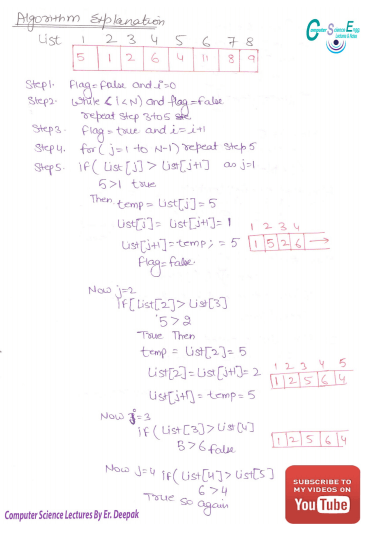 Algorithm Explanation
Computer Science Egg
Lectures & Notes
List 1 2 3 4 5 6 7 8
5 1 2 6 4 11 8 9
Step1. Flag=false and i=0
Step2. while (i<N) and flag=false
repeat step 3 to 5
Step3. flag=true and i=i+1
Step4. for(j=1 to N-1) repeat step5
Step5. if( List[j] > List[j+1] as j=1
5>1 true
Then temp = List[j] = 5
List[j] = List[j+1] = 1
1 2 3 4
List[j+1] = temp; = 5
1 5 2 6 →
flag=false.
Now j=2
if[List[2] > List[3]
5>2
True Then
temp = List[2] = 5
1 2 3 4 5
List[2] = List[j+1] = 2
1 2 5 6 4
List[j+1] = temp = 5
Now j=3
if( List[3] > List[4]
1 2 5 6 4
5>6 false
Now j=4 if( List[4] > List[5]
6>4
True so again
SUBSCRIBE TO
MY VIDEOS ON
YouTube
Computer Science Lectures By Er. Deepak